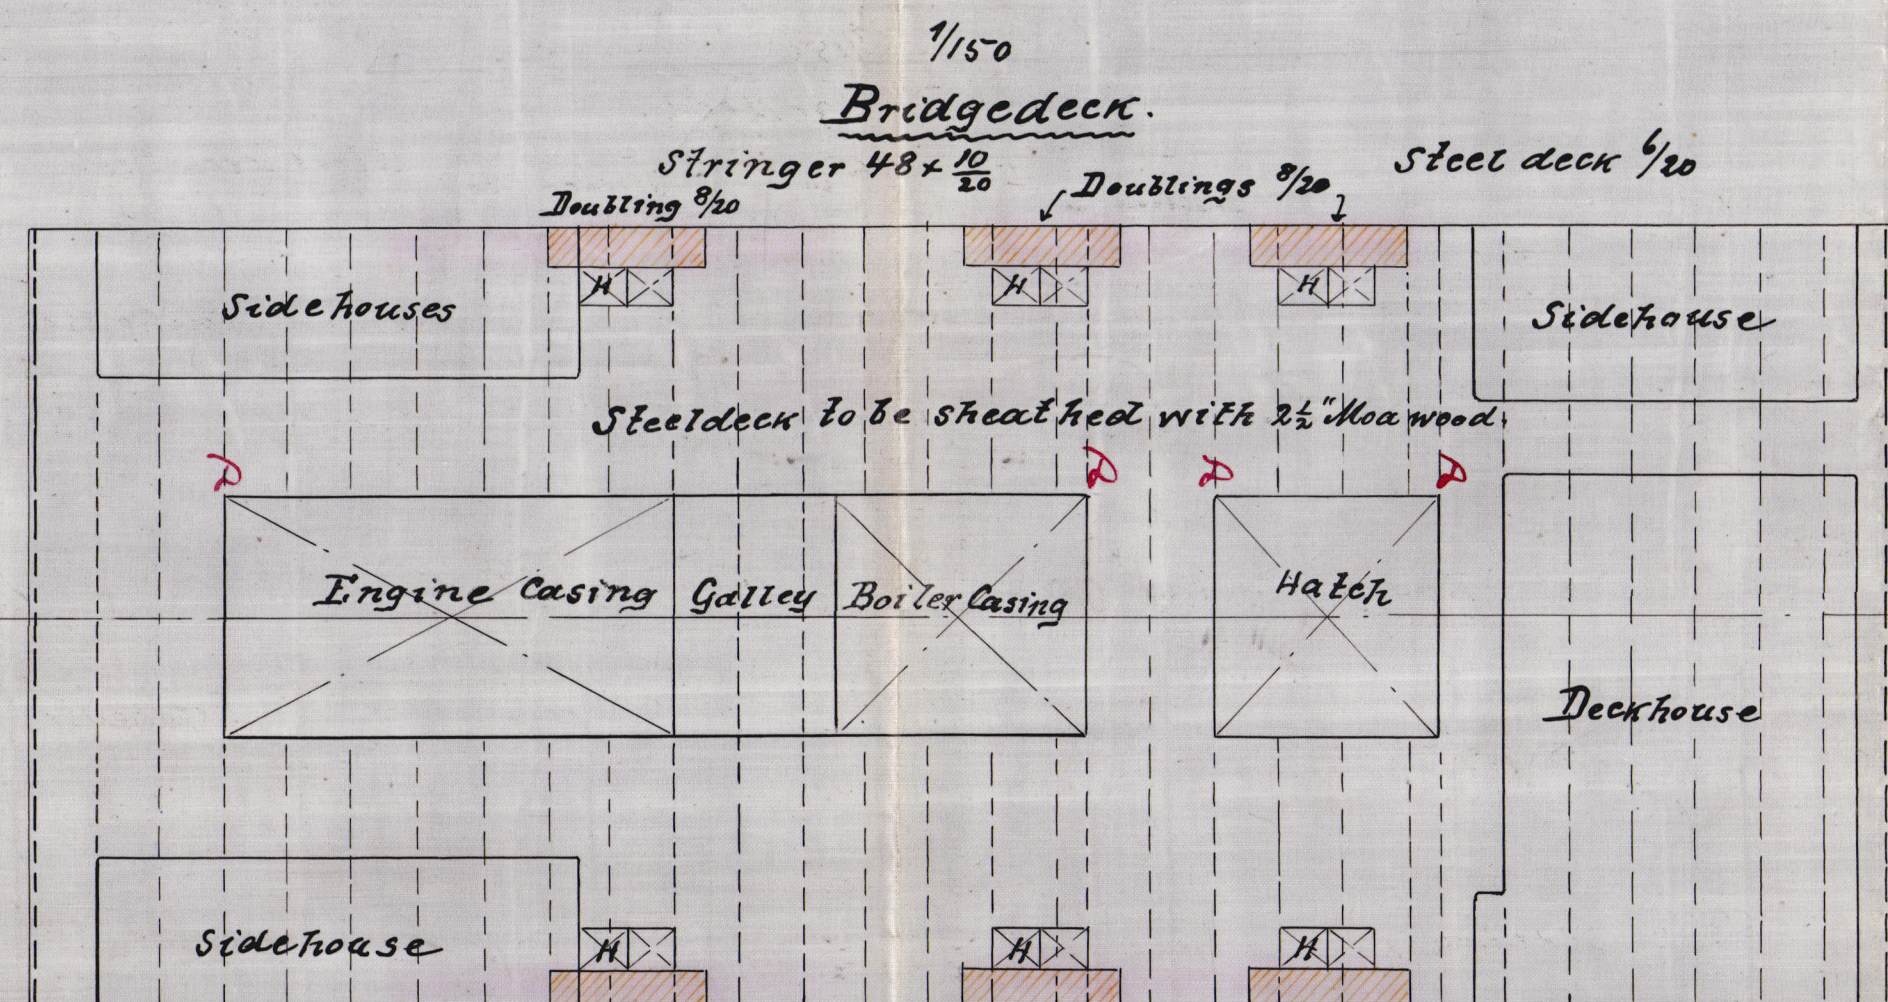 1/150
Bridgedeck.
Stringer 48 x 10/20
Steel deck 6/20
Doubling 8/20
Doublings 8/20
H
H
H
Sidehouses
Sidehouse
Steeldeck to be sheathed with 2½" Moa wood.
D
D
D
D
Engine Casing
Galley
Boiler Casing
Hatch
Deckhouse
Sidehouse
H
H
H